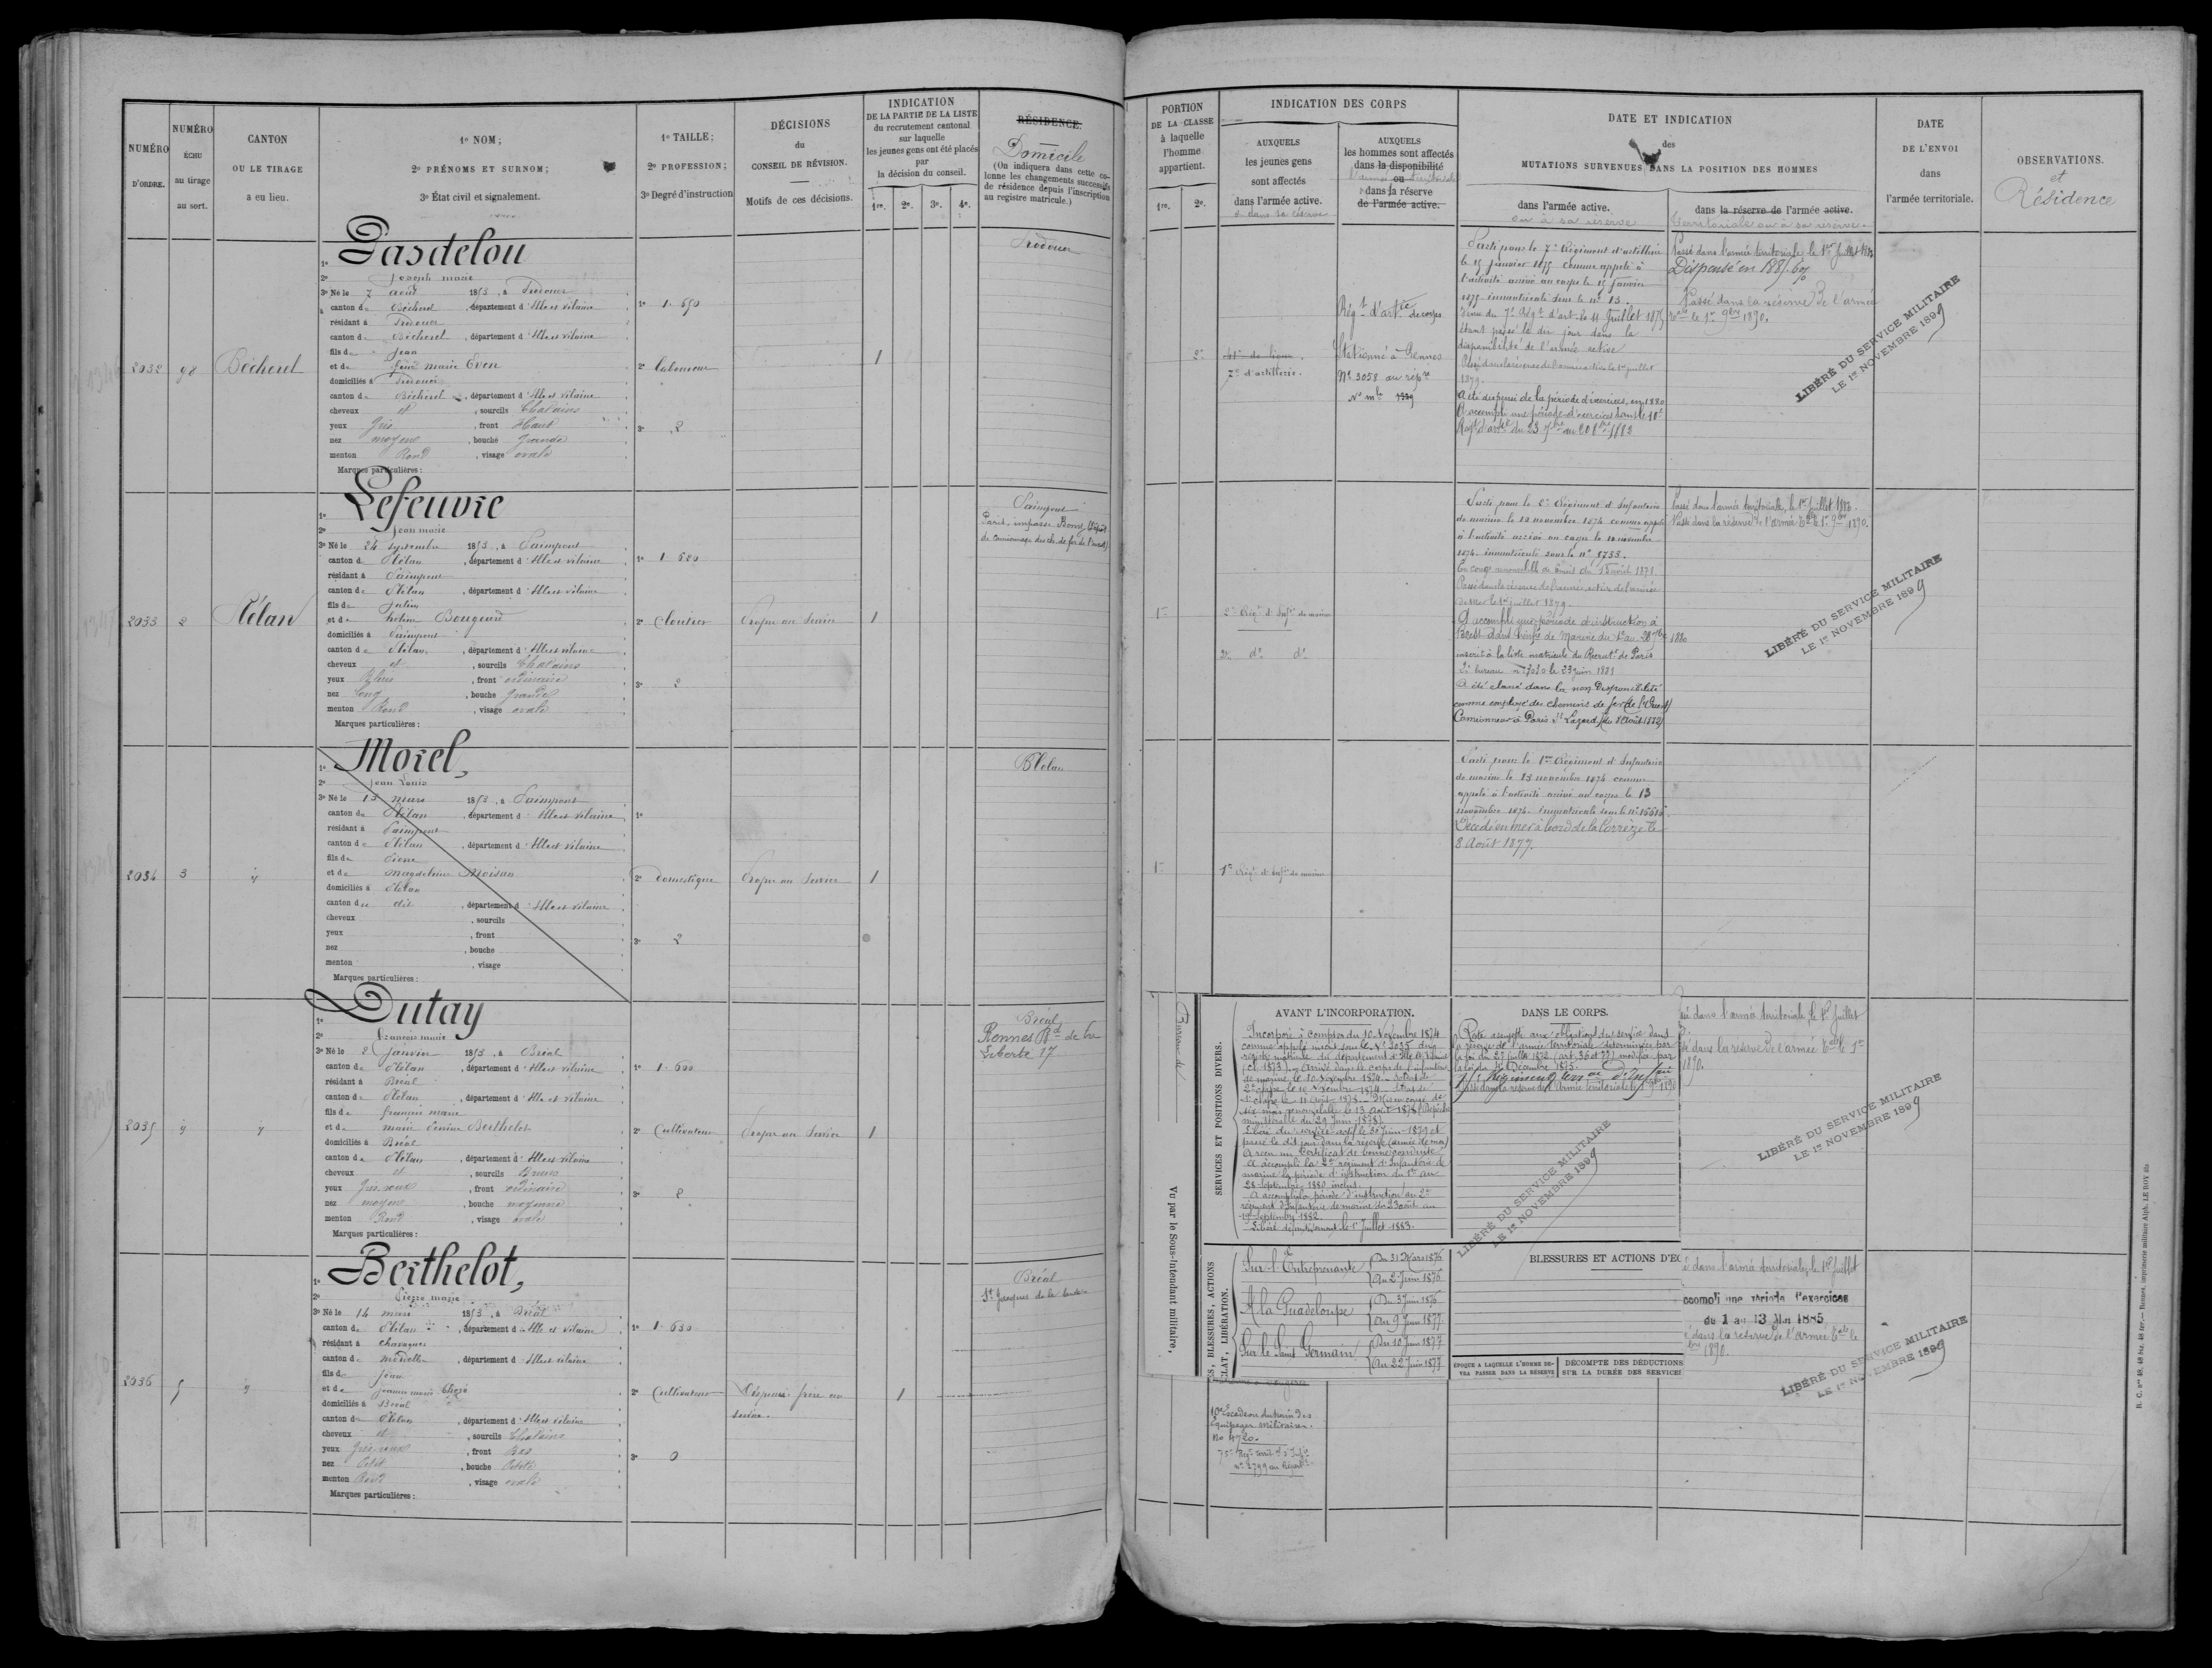 NUMÉRO
D'ORDRE.
NUMÉRO
ÉCHU
au tirage
au sort.
CANTON
OU LE TIRAGE
a eu lieu.
1º NOM;
2º PRÉNOMS ET SURNOM;
3º État civil et signalement.
1º TAILLE;
2º PROFESSION;
3º Degré d'instruction
DÉCISIONS
du
CONSEIL DE RÉVISION.
Motifs de ces décisions.
INDICATION
DE LA PARTIE DE LA LISTE
du recrutement cantonal
sur laquelle
les jeunes gens ont été placés
par
la décision du conseil.
1re. 2e. 3e. 4e.
RÉSIDENCE.
Domicile
(On indiquera dans cette co-
lonne les changements successifs
de résidence depuis l'inscription
au registre matricule.)
2032
98
Bécherel
1º Gasdelou
2º Joseph marie
3º Né le 7 août 1853, à Irodouer
canton de Bécherel, département d'Ille et vilaine
résidant à Irodouer
canton de Bécherel, département d'Ille et vilaine
fils de Jean
et de marie Even
domiciliés à Irodouer
canton de Bécherel, département d'Ille et vilaine
cheveux et, sourcils Chatains
yeux Gris, front Haut
nez moyen, bouche Grande
menton Rond, visage ovale
Marques particulières:
1º 1.690
2º laboureur
3º 2
1
Irodouer
2033
2
Plélan
1º Lefeuvre
2º Jean marie
3º Né le 24 septembre 1853, à Paimpont
canton de Plélan, département d'Ille et vilaine
résidant à Paimpont
canton de Plélan, département d'Ille et vilaine
fils de Julien
et de Bougeard
domiciliés à Paimpont
canton de Plélan, département d'Ille et vilaine
cheveux et, sourcils Chatains
yeux Bleus, front ordinaire
nez long, bouche Grande
menton Rond, visage ovale
Marques particulières:
1º 1.620
2º Cloutier
3º 2
Propre au Service
1
Paimpont
Paris, impasse
de camionnage des ch. de fer de l'ouest)
2034
3
1º Morel,
2º Jean Louis
3º Né le 13 mars 1853, à Paimpont
canton de Plélan, département d'Ille et vilaine
résidant à Paimpont
canton de Plélan, département d'Ille et vilaine
fils de Pierre
et de magdeleine Moisan
domiciliés à Plélan
canton du dit, département d'Ille et vilaine
cheveux, sourcils
yeux, front
nez, bouche
menton, visage
Marques particulières:
1º
2º Domestique
3º 2
Propre au Service
1
Plélan
2035
1º Dutay
2º François marie
3º Né le 2 Janvier 1853, à Bréal
canton de Plélan, département d'Ille et vilaine
résidant à Bréal
canton de Plélan, département d'Ille et vilaine
fils de françois marie
et de marie Berthelot
domiciliés à Bréal
canton de Plélan, département d'Ille et vilaine
cheveux et, sourcils Bruns
yeux Gris roux, front ordinaire
nez moyen, bouche moyenne
menton Rond, visage ovale
Marques particulières:
1º 1.600
2º Cultivateur
3º 2
Propre au Service
1
Bréal
Rennes Bd de la
Liberté 17
2036
5
1º Berthelot,
2º Pierre marie
3º Né le 14 mars 1853, à Bréal
canton de Plélan, département d'Ille et vilaine
résidant à Chavagnes
canton de Mordelles, département d'Ille et vilaine
fils de Jean
et de Jeanne marie
domiciliés à Bréal
canton de Plélan, département d'Ille et vilaine
cheveux et, sourcils Chatains
yeux Gris roux, front Bas
nez Petit, bouche Petite
menton Rond, visage ovale
Marques particulières:
1º 1.630
2º Cultivateur
3º 0
Dispensé frère au
service.
1
Bréal
St Jacques de la lande
PORTION
DE LA CLASSE
à laquelle
l'homme
appartient.
1re. 2e.
INDICATION DES CORPS
AUXQUELS
les jeunes gens
sont affectés
dans l'armée active.
et dans sa réserve
AUXQUELS
les hommes sont affectés
dans la disponibilité
ou
l'armée territoriale
dans la réserve
de l'armée active.
DATE ET INDICATION
des
MUTATIONS SURVENUES DANS LA POSITION DES HOMMES
dans l'armée active.
ou à sa réserve
dans la réserve de l'armée active.
territoriale ou à sa réserve.
DATE
DE L'ENVOI
dans
l'armée territoriale.
OBSERVATIONS.
et
Résidence
2e
41e de ligne.
7e d'artillerie.
Régt d'artie de corps
Stationné à Rennes
Nº 3058 au rép
Parti pour le 7e Régiment d'artillerie
le 15 Janvier 1875 comme appelé à
l'activité arrivé au corps le 15 Janvier
1875 immatriculé sous le nº 13.
Venu du 7e Régt d'art. le 11 Juillet 1875
étant passé le dit jour dans la
disponibilité de l'armée active
Passé dans la réserve de l'armée active le 1er juillet
1879.
A été dispensé de la période d'exercices, en 1880
A accompli une période d'exercices dans le 10e
Régt d'artie du 23 7bre au 20 8bre 1882
Passé dans l'armée territoriale le 1er Juillet
Dispensé en 1885.
Passé dans la réserve de l'armée
le 1er 9bre 1890.
LIBÉRÉ DU SERVICE MILITAIRE
LE 1er NOVEMBRE 1899
1re
2e Régt d'Infie de marine
do do
Parti pour le 2e Régiment d'Infanterie
de marine le 12 novembre 1874 comme appelé
à l'activité arrivé au corps le 12 novembre
1874. immatriculé sous le nº 1733.
En congé renouvelable de 6 mois du 15 août 1878
Passé dans la réserve de l'armée active de l'armée
de mer le 1er juillet 1879.
A accompli une période d'instruction à
Brest dans l'infie de Marine du 1er au 28 7bre 1880
inscrit à la liste matricule du Recrutt de Paris
2e bureau le 23 juin 1881
A été classé dans la non Disponibilité
comme employé des chemins de fer de l'Ouest
Camionneur à Paris St Lazare (du 8 Août 1882)
Passé dans l'armée territoriale, le 1er Juillet 1883.
Passé dans la réserve de l'armée tale le 1er 9bre 1890.
LIBÉRÉ DU SERVICE MILITAIRE
LE 1er NOVEMBRE 1899
1re
1er Régt d'Infie de marine
Parti pour le 1er Régiment d'Infanterie
de marine le 13 novembre 1874 comme
appelé à l'activité arrivé au corps le 13
novembre 1874. Immatriculé sous le nº
Décédé en mer à bord de la Corrèze le
8 Août 1877.
Vu par le Sous-Intendant militaire,
SERVICES ET POSITIONS DIVERS.
AVANT L'INCORPORATION.
Incorporé à compter du 10 Novembre 1874
comme appelé inscrit sous le Nº 2035 du
registre matricule du département d'Ille et Vilaine
(cl. 1873). Arrivé dans le corps de l'infanterie
de marine le 10 Novembre 1874. Soldat de
2e classe le 10 Novembre 1874. Soldat de
1re classe le 11 Août 1875. Mis en congé de
six mois renouvelable le 13 Août 1878 (Dépêche
ministérielle du 29 Juin 1878)
Libéré du service actif le 30 Juin 1879 et
passé le dit jour dans la réserve (armée de mer)
A reçu un Certificat de bonne conduite
A accompli la 2e régiment d'Infanterie de
marine la période d'instruction du 1er au
28 septembre 1880 inclus.
A accompli la période d'instruction au 2e
régiment d'Infanterie de marine du 23 août au
19 septembre 1882.
Libéré définitivement le 1er Juillet 1883.
DANS LE CORPS.
Reste assujetti aux obligations du service dans
la réserve de l'armée territoriale déterminées par
la loi du 27 juillet 1872 (art. 36 et 77) modifiée par
la loi du 18 Décembre 1875.
Passé dans la réserve de l'Armée territoriale le 1er 9bre 1890
LIBÉRÉ DU SERVICE MILITAIRE
LE 1er NOVEMBRE 1899
BLESSURES, ACTIONS
LIBÉRATION.
Sur l'Entreprenante
Du 31 Mars 1876
Au 2 Juin 1876
A la Guadeloupe
Du 3 Juin 1876
Au 9 Juin 1877
Sur le Saint Germain
Du 10 Juin 1877
Au 22 Juin 1877
BLESSURES ET ACTIONS D'EC
ÉPOQUE A LAQUELLE L'HOMME DE-
VRA PASSER DANS LA RÉSERVE
DÉCOMPTE DES DÉDUCTIONS
SUR LA DURÉE DES SERVICES
dans l'armée territoriale, le 1er Juillet
dans la réserve de l'armée tale le 1er
1890.
LIBÉRÉ DU SERVICE MILITAIRE
LE 1er NOVEMBRE 1899
10e Escadron du train des
Équipages militaires.
No 4720.
75e Régt territ. d'Infie
nº 2799 au Répert.
dans l'armée territoriale, le 1er Juillet
ccompli une période d'exercices
du 1 au 13 Mai 1885
dans la réserve de l'armée tale le
bre 1890.
LIBÉRÉ DU SERVICE MILITAIRE
LE 1er NOVEMBRE 1899
R. C. nos 48, 48 bis, 48 ter. — Rennes, imprimerie militaire Alph. LE ROY fils